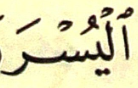 ٱلْيُسْرَ